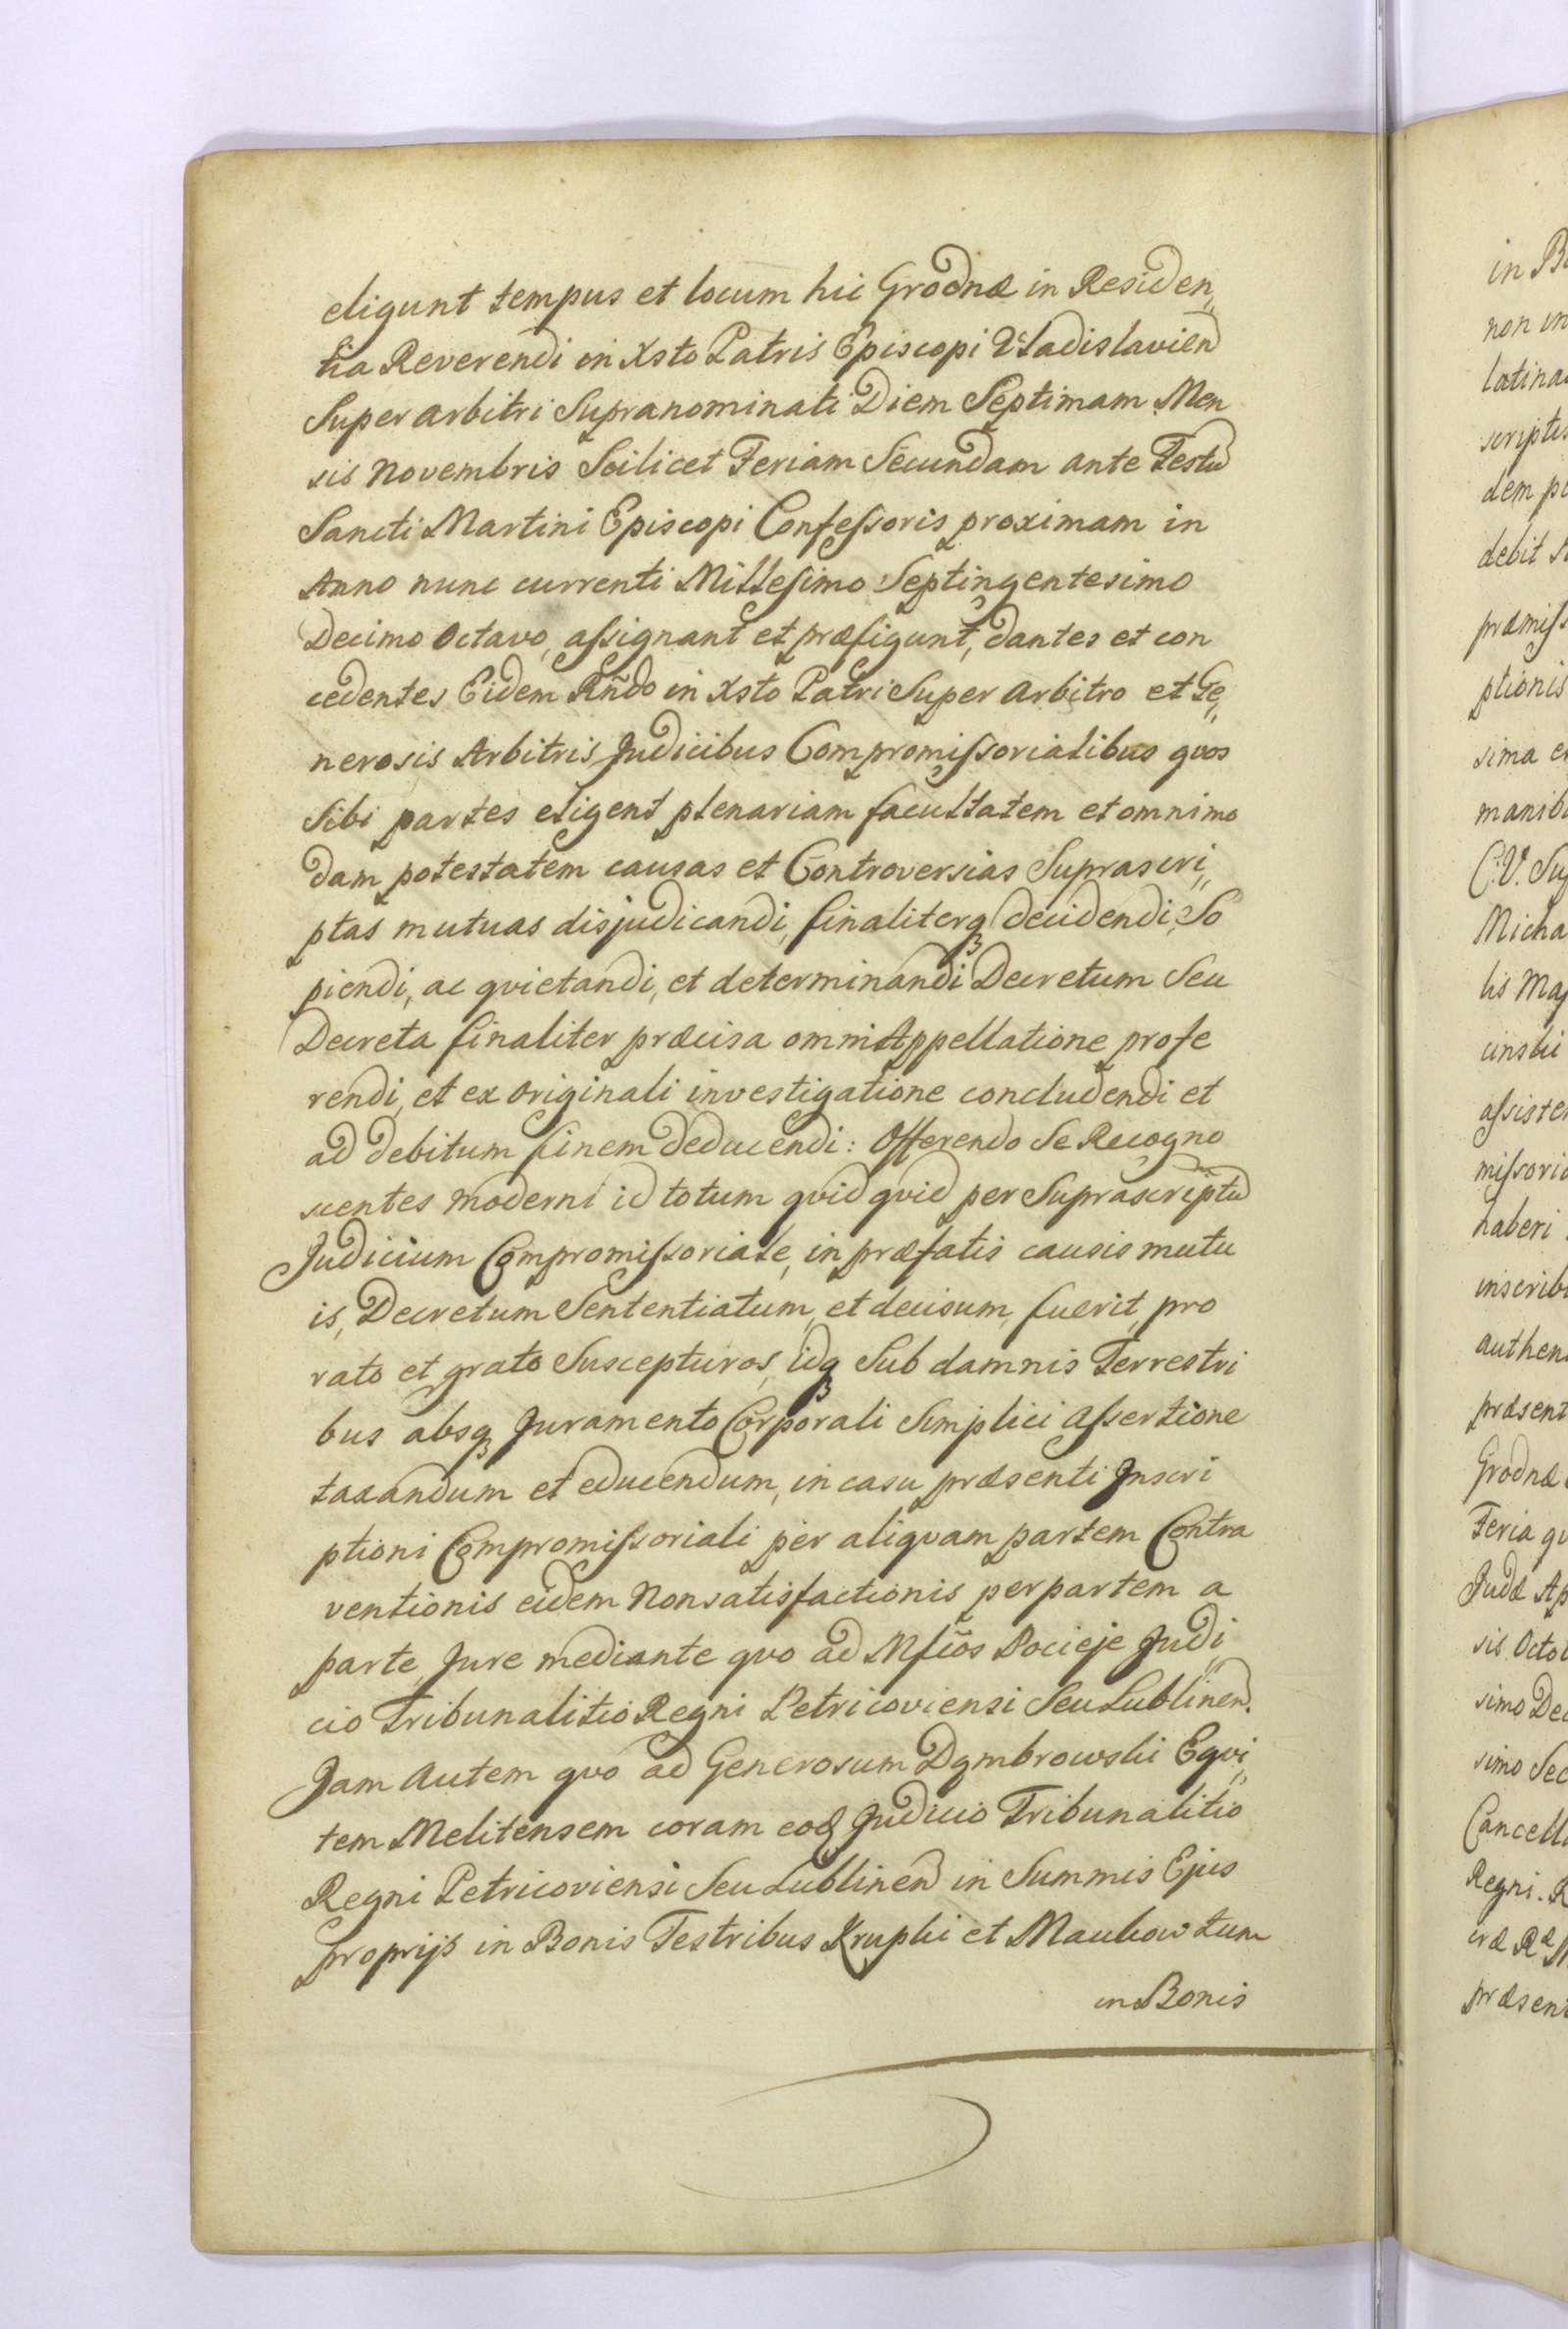 eligunt tempus et locum hic Grodnæ in Residen„
tia Reverendi in Xsto Patris Episcopi Vladislavien
Superarbitri Supranominati Diem Septimam Men
sis Novembris Scilicet Feriam Secundam ante Festu
Sancti Martini Episcopi Confeſsoris proximam in
Anno nunc currenti Milleſimo Septingentesimo
Decimo Octavo, aſsignant et præfigunt, dantes et con
cedentes Eidem Rñdo in Xsto Patri Super Arbitro et Ge„
nerosis Arbitris Judicibus Compromiſsorialibus qvos
Sibi partes eligent plenariam facultatem et omnimo
dam potestatem causas et Controversias Suprascri„
ptas mutuas disjudicandi, finaliterq₃ decidendi, So
piendi, ac qvietandi, et determinandi Decretum Seu
Decreta finaliter præcisa omni Appellatione profe
rendi, et ex originali investigatione concludendi et
ad debitum finem deducendi: Offerendo Se Recogno
scentes moderni id totum qvid qvid per Suprascriptu
Judicium Compromiſsoriale, in præfatis causis mutu
is, Decretum Sententiatum, et decisum, fuerit, pro
rato et grato Suscepturos, idq₃ Sub damnis Terrestri
bus absq₃ Juramento Corporali Simplici Aſsertione
taxandum et educendum, in casu præsenti Inscri
ptioni Compromiſsoriali per aliqvam partem Contra
ventionis eidem Nonsatisfactionis per partem a
parte, Jure mediante qvo ad Mficos Pocieje Judi„
cio Tribunalitio Regni Petricoviensi Seu Lublinen.
Jam Autem qvo ad Generosum Dąmbrowski Eqvi„
tem Melitensem coram eod Judicio Tribunalitio
Regni Petricoviensi Seu Lublinen in Summis Ejus
proprijs in Bonis Testribus Krupki et Maukow tum
in Bonis
in B
non in
latina
scriptis
dem p
debit
præmiſs
ptionis
sima e
manib
C. V. Su
Micha
lis Maj
cinski
aſsiste
miſsori
haberi
inscrib
authen
præsent
Grodnæ
Feria qv
Judæ Ap
sis Octo
simo De
simo Sec
Cancell
Regni. R
præsen